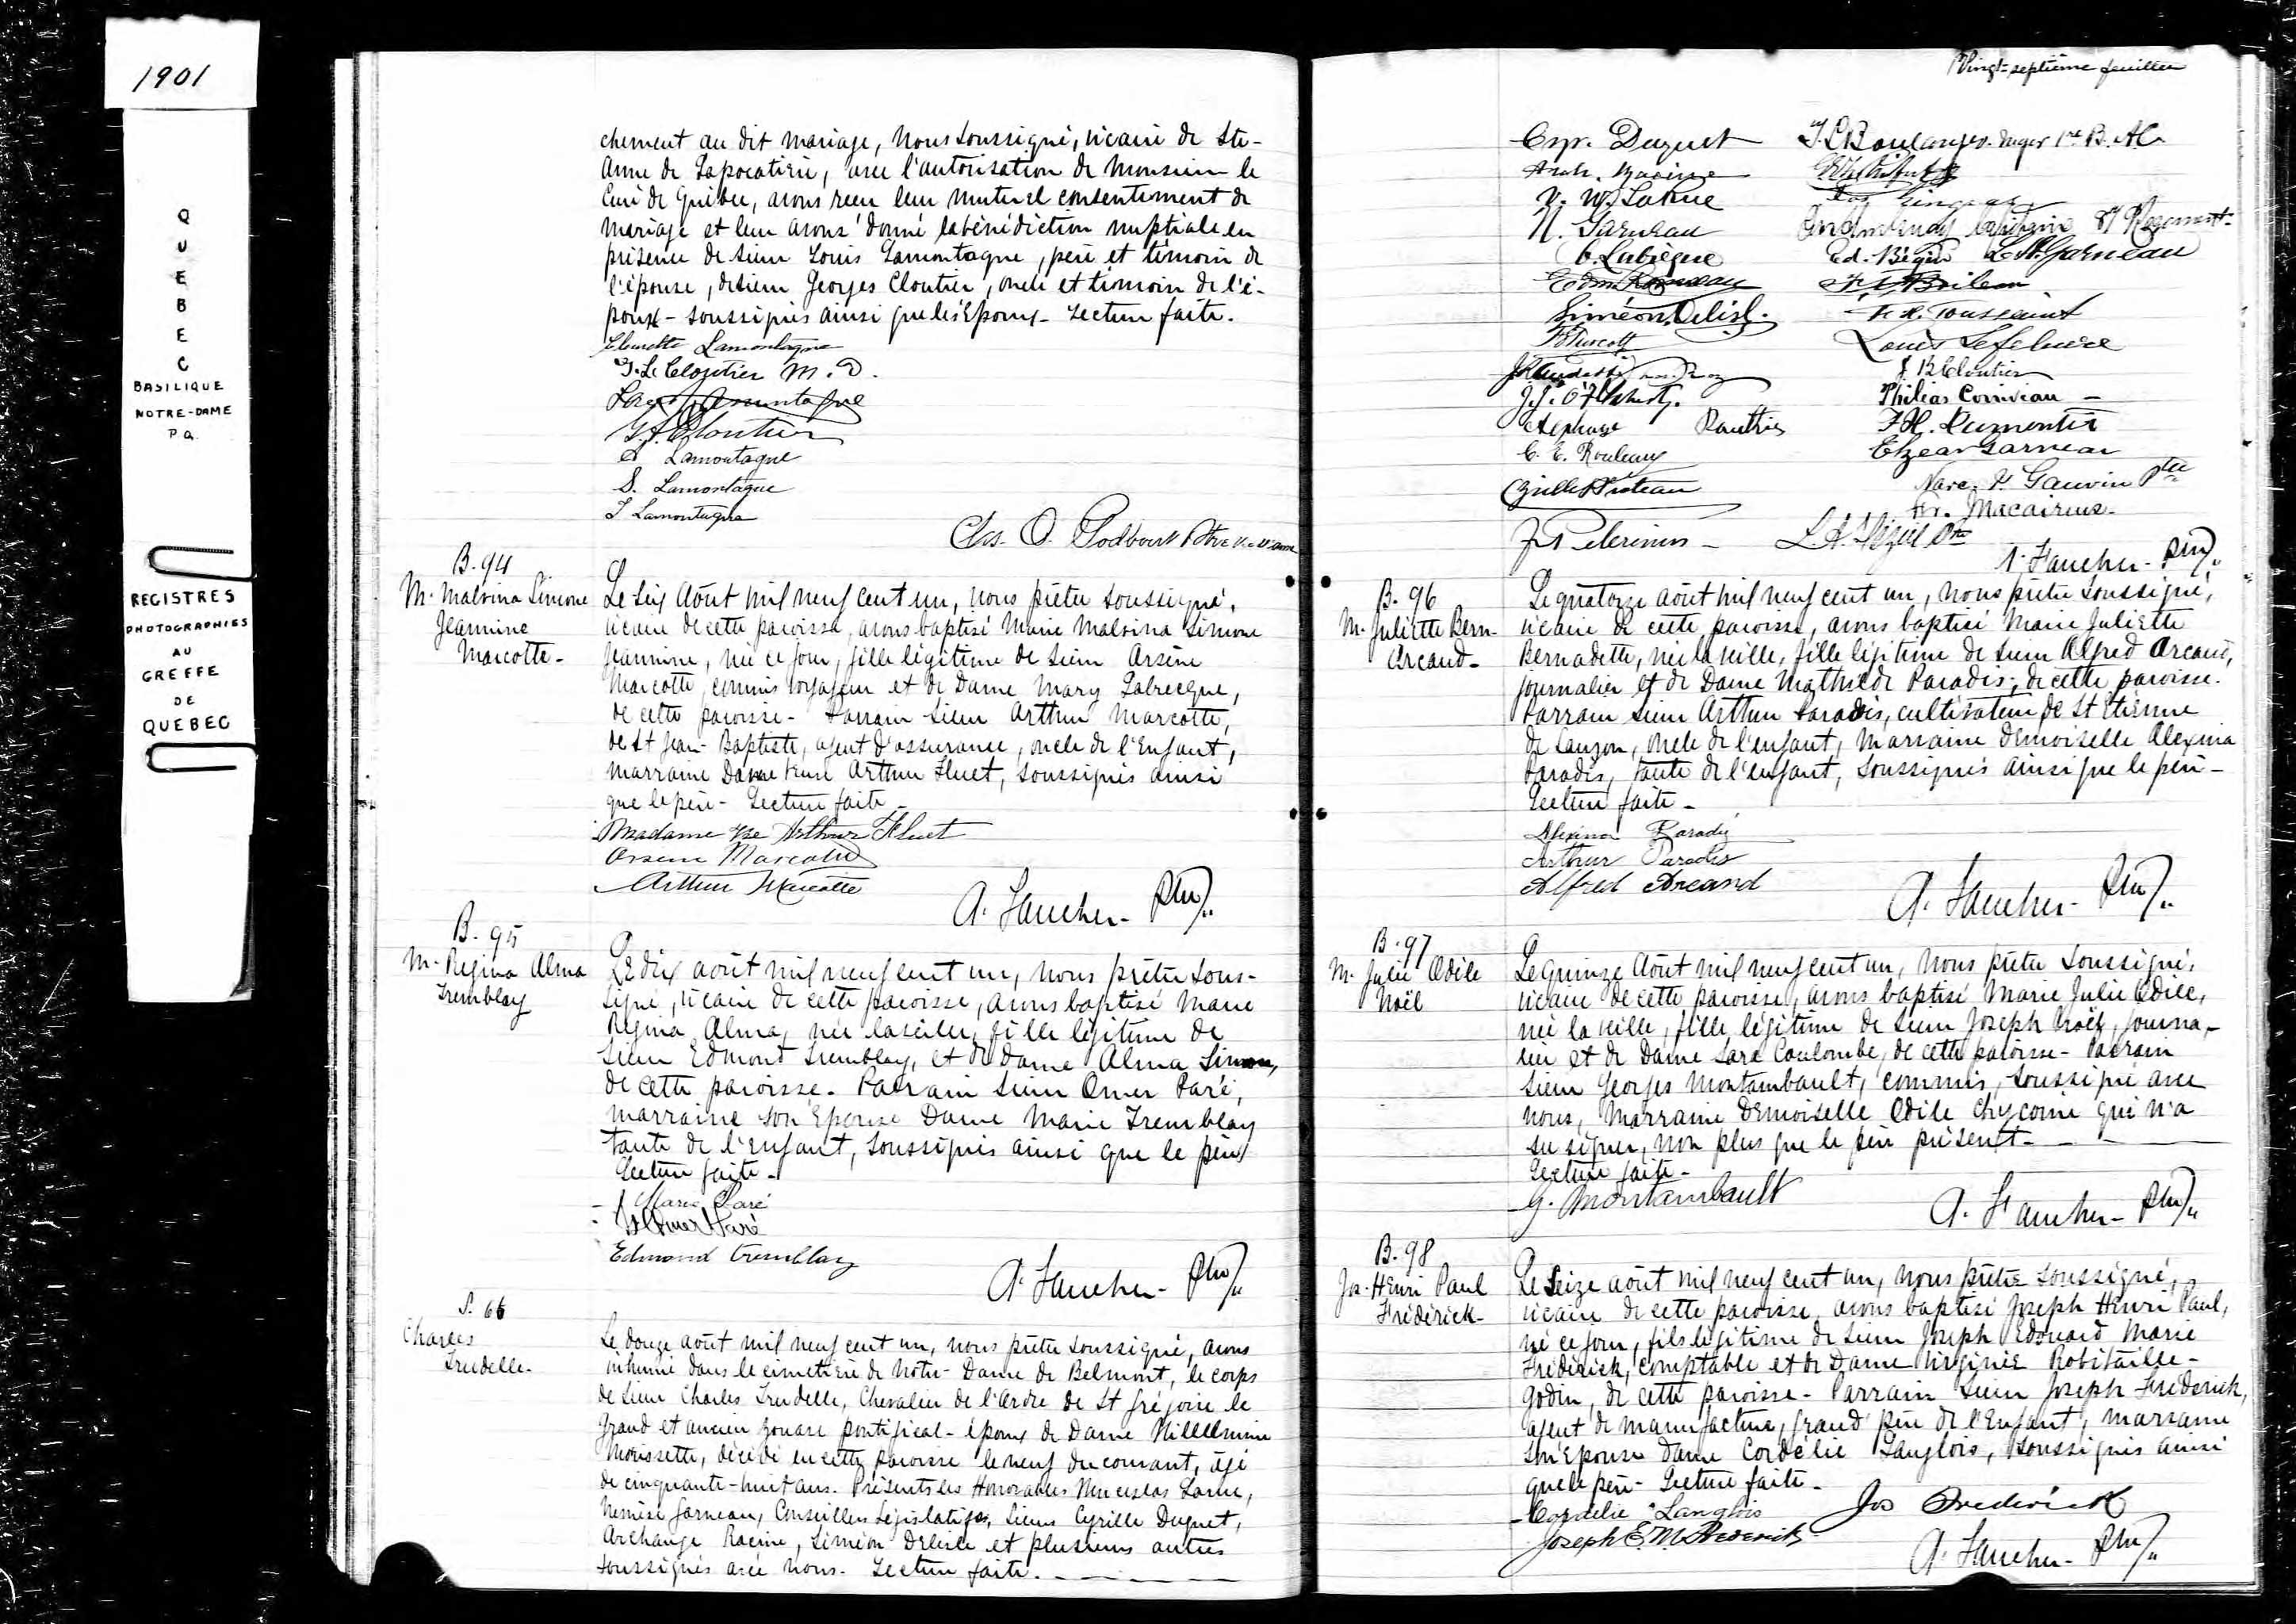 1901
QUEBEC
BASILIQUE
NOTRE-DAME
P.Q.
REGISTRES
PHOTOGRAPHIES
AU
GREFFE
DE
QUEBEC
chement au dit mariage, Nous soussigné, vicaire de Ste-
Anne de Lapocatière, avec l'autorisation de Monsieur le
Curé de Québec, avons reçu leur mutuel consentement de
mariage et leur avons donné la bénédiction nuptiale en
présence de Sieur Louis Lamontagne, père et témoin de
l'épouse, de Sieur Georges Cloutier, oncle et témoin de l'é-
poux - soussignés ainsi que les Epoux - Lecture faite.
Lamontagne
J. L. Cloutier M.D.
Lamontagne
Cloutier
Lamontagne
S. Lamontagne
Lamontagne
Chs. O. Godbout Ptre
B. 94
M. Malvina Simone
Jeannine
Marcotte -
Le six Août mil neuf cent un, nous prêtre soussigné,
vicaire de cette paroisse, avons baptisé Marie Malvina Simone
Jeannine, née ce jour, fille légitime de Sieur Arsène
Marcotte, commis voyageur et de Dame Mary Labrecque,
de cette paroisse - Parrain Sieur Arthur Marcotte,
de St Jean-Baptiste, agent d'assurance, oncle de l'Enfant,
Marraine Dame Veuve Arthur Fluet, soussignés ainsi
que le père - Lecture faite -
Madame Vve Arthur Fluet
Arsene Marcotte
Arthur Marcotte
A. Faucher - Ptre
B. 95
M. Regina Alma
Tremblay
Le dix août mil neuf cent un, nous prêtre sous-
signé, vicaire de cette paroisse, avons baptisé Marie
Régina Alma, née la veille, fille légitime de
Sieur Edmond Tremblay, et de Dame Alma Simon,
de cette paroisse. Parrain Sieur Omer Paré,
marraine son Epouse Dame Marie Tremblay
tante de l'Enfant, soussignés ainsi que le père
Lecture faite -
Marie Paré
Omer Paré
Edmond Tremblay
A. Faucher - Ptre
S. 66
Charles
Trudelle -
Le douze août mil neuf cent un, nous prêtre soussigné, avons
inhumé dans le cimetière de Notre-Dame de Belmont, le corps
de Sieur Charles Trudelle, Chevalier de l'Ordre de St Grégoire le
Grand et ancien zouave pontifical - époux de Dame
Morissette, décédé en cette Paroisse le neuf du courant, âgé
de cinquante-huit ans. Présents les Honorables Larue,
Némèse Garneau, Conseillers Législatifs, Sieurs Cyrille Duquet,
Archange Racine, Siméon Delisle et plusieurs autres
soussignés avec nous. Lecture faite.
Vingt-septième feuillet
Cyr. Duquet
J. L. Boulanger
Arch. Racine
V. W. LaRue
N. Garneau
Ed. Bégin
Garneau
Siméon Delisle
Toussaint
Turcotte
Louis Lefebvre
J. B. Cloutier
Philias Corriveau -
Alphonse Pouthier
Dumontier
C. E. Rouleau
Elzear Garneau
Narc. Gauvin Ptre
Fr. Macairius -
A. Faucher - Ptre
B. 96
M. Juliette Bern.
Arcand -
Le quatorze août mil neuf cent un, nous prêtre soussigné,
vicaire de cette paroisse, avons baptisé Marie Juliette
Bernadette, née la veille, fille légitime de Sieur Alfred Arcand,
journalier et de Dame Mathilde Paradis, de cette paroisse.
Parrain Sieur Arthur Paradis, cultivateur de St Etienne
de Lauzon, oncle de l'enfant, Marraine Demoiselle Alexina
Paradis, tante de l'enfant, soussignés ainsi que le père -
Lecture faite -
Alexina Paradis
Arthur Paradis
Alfred Arcand
A. Faucher - Ptre
B. 97
M. Julie Odile
Noël
Le quinze Août mil neuf cent un, nous prêtre soussigné,
vicaire de cette paroisse, avons baptisé Marie Julie Odile,
née la veille, fille légitime de Sieur Joseph Noël, journa-
lier et de Dame Sara Coulombe, de cette paroisse - Parrain
Sieur Georges Montambault, commis, soussigné avec
nous, Marraine Demoiselle Odile qui n'a
su signer, non plus que le père présent -
Lecture faite -
G. Montambault
A. Faucher - Ptre
B. 98
Jos. Henri Paul
Fréderick -
Le Seize août mil neuf cent un, nous prêtre soussigné,
vicaire de cette paroisse, avons baptisé Joseph Henri Paul,
né ce jour, fils légitime de Sieur Joseph Edouard Marie
Fréderick, comptable et de Dame Virginie Robitaille -
Godin, de cette paroisse - Parrain Sieur Joseph Frederick,
agent de manufacture, grand père de l'Enfant, marraine
son Epouse Dame Cordélie Langlois, soussignés ainsi
que le père - Lecture faite -
Cordélie Langlois
Jos Frederick
Joseph E. M. Frederick
A. Faucher - Ptre